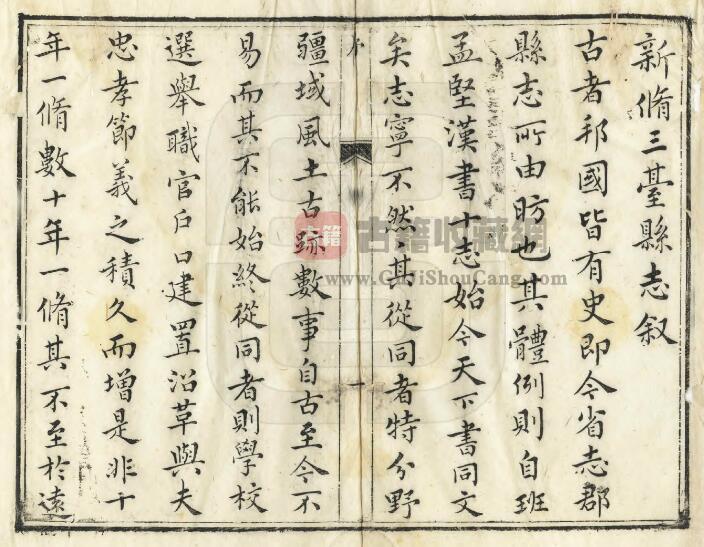 新脩三臺縣志叙
古者邦國皆有史即今省志郡
縣志所由昉也其體例則自班
孟堅漢書十志始今天下書同文
矣志寧不然其從同者特分野
序
一
疆域風土古蹟數事自古至今不
易而其不能始終從同者則學校
選舉職官戶口建置沿革與夫
忠孝節義之積久而增是非十
年一脩數十年一脩其不至於遠
古籍
古籍收藏網
www.GuJiShouCang.com